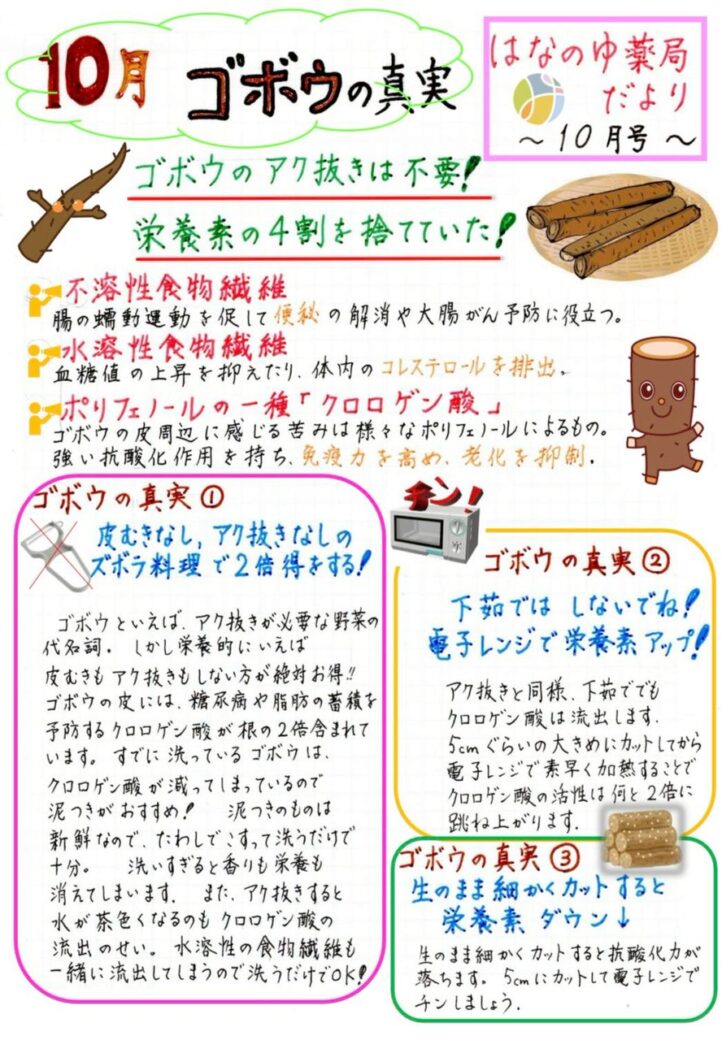 10月 ゴボウの真実
はなのゆ薬局
だより
～10月号～
ゴボウのアク抜きは不要!
栄養素の4割を捨てていた!
不溶性食物繊維
腸の蠕動運動を促して便秘の解消や大腸がん予防に役立つ。
水溶性食物繊維
血糖値の上昇を抑えたり、体内のコレステロールを排出。
ポリフェノールの一種「クロロゲン酸」
ゴボウの皮周辺に感じる苦みは様々なポリフェノールによるもの。
強い抗酸化作用を持ち、免疫力を高め、老化を抑制。
ゴボウの真実①
皮むきなし,アク抜きなしの
ズボラ料理で2倍得をする!
ゴボウといえば、アク抜きが必要な野菜の
代名詞。しかし栄養的にいえば
皮むきもアク抜きもしない方が絶対お得!!
ゴボウの皮には、糖尿病や脂肪の蓄積を
予防するクロロゲン酸が根の2倍含まれて
います。すでに洗っているゴボウは、
クロロゲン酸が減ってしまっているので
泥つきがおすすめ! 泥つきのものは
新鮮なので、たわしでこすって洗うだけで
十分。 洗いすぎると香りも栄養も
消えてしまいます。また、アク抜きすると
水が茶色くなるのもクロロゲン酸の
流出のせい。水溶性の食物繊維も
一緒に流出してしまうので洗うだけでOK!
チン!
ゴボウの真実②
下茹では しないでね!
電子レンジで栄養素アップ!
アク抜きと同様、下茹ででも
クロロゲン酸は流出します。
5cmぐらいの大きめにカットしてから
電子レンジで素早く加熱することで
クロロゲン酸の活性は何と2倍に
跳ね上がります。
ゴボウの真実③
生のまま細かくカットすると
栄養素 ダウン↓
生のまま細かくカットすると抗酸化力が
落ちます。5cmにカットして電子レンジで
チンしましょう。